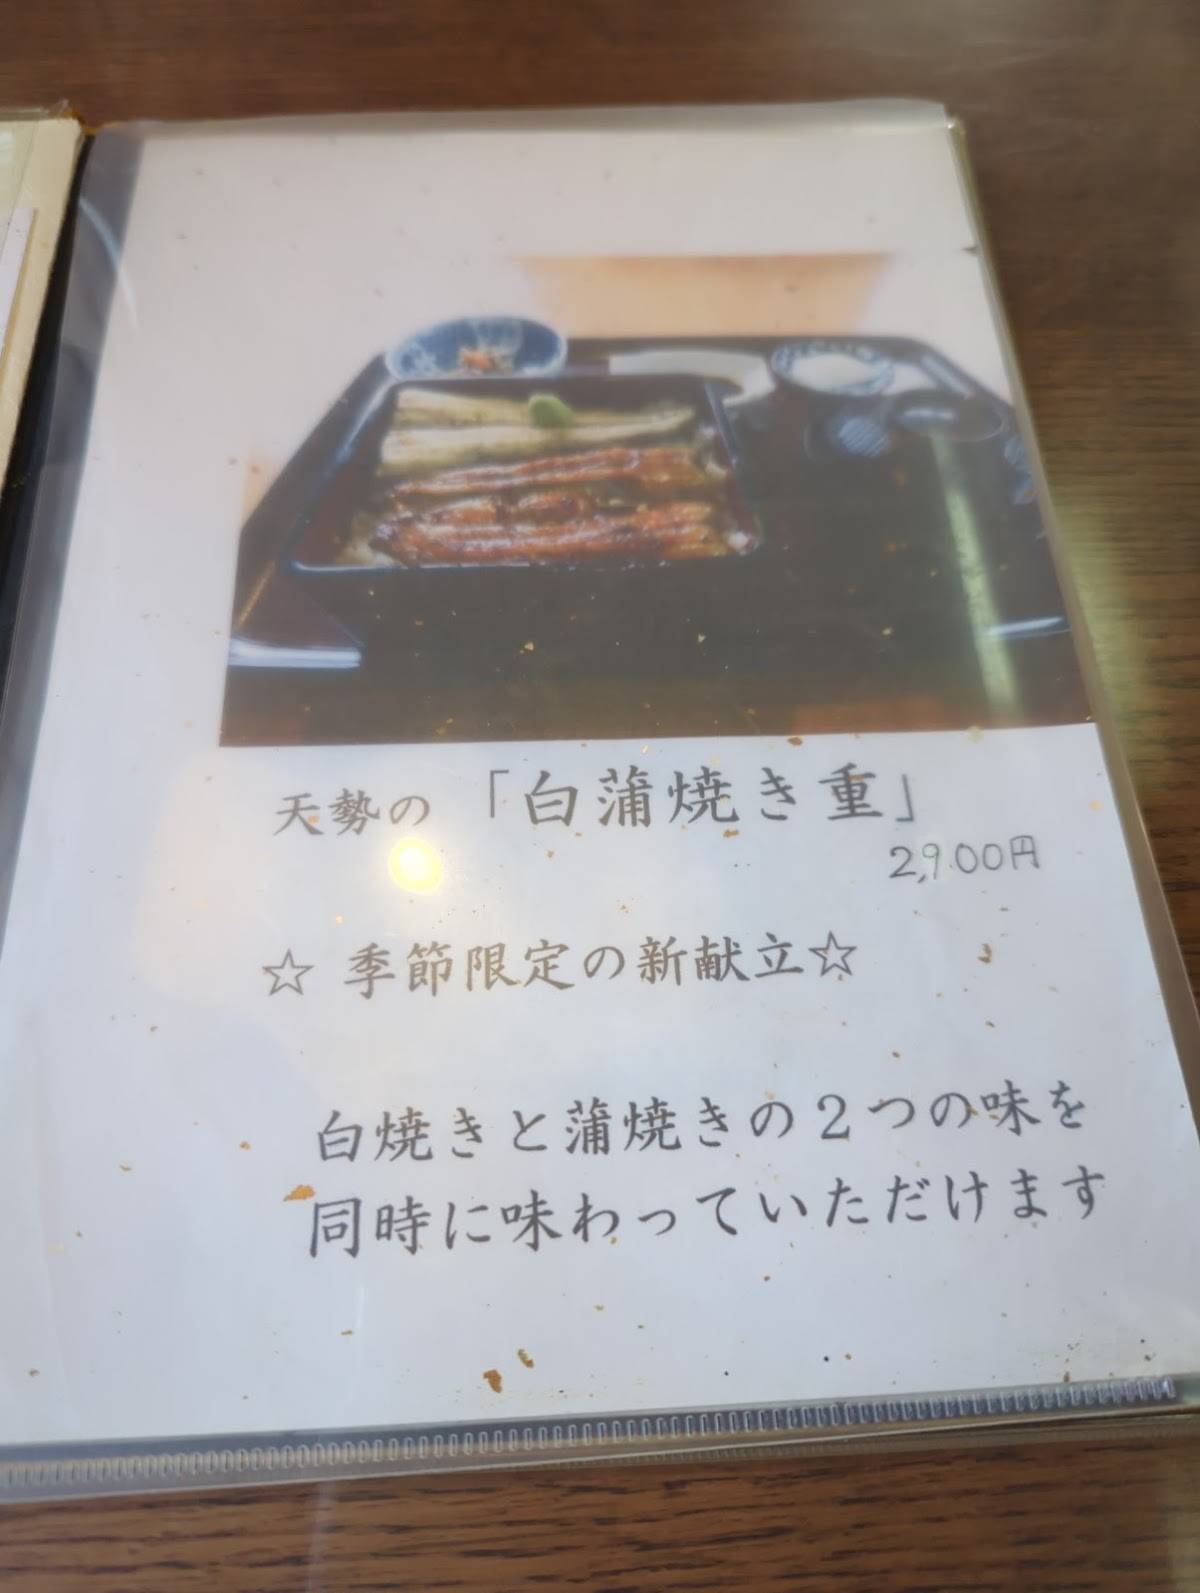 天勢の「白蒲焼き重」
2,900円
☆ 季節限定の新献立☆
白焼きと蒲焼きの２つの味を
同時に味わっていただけます